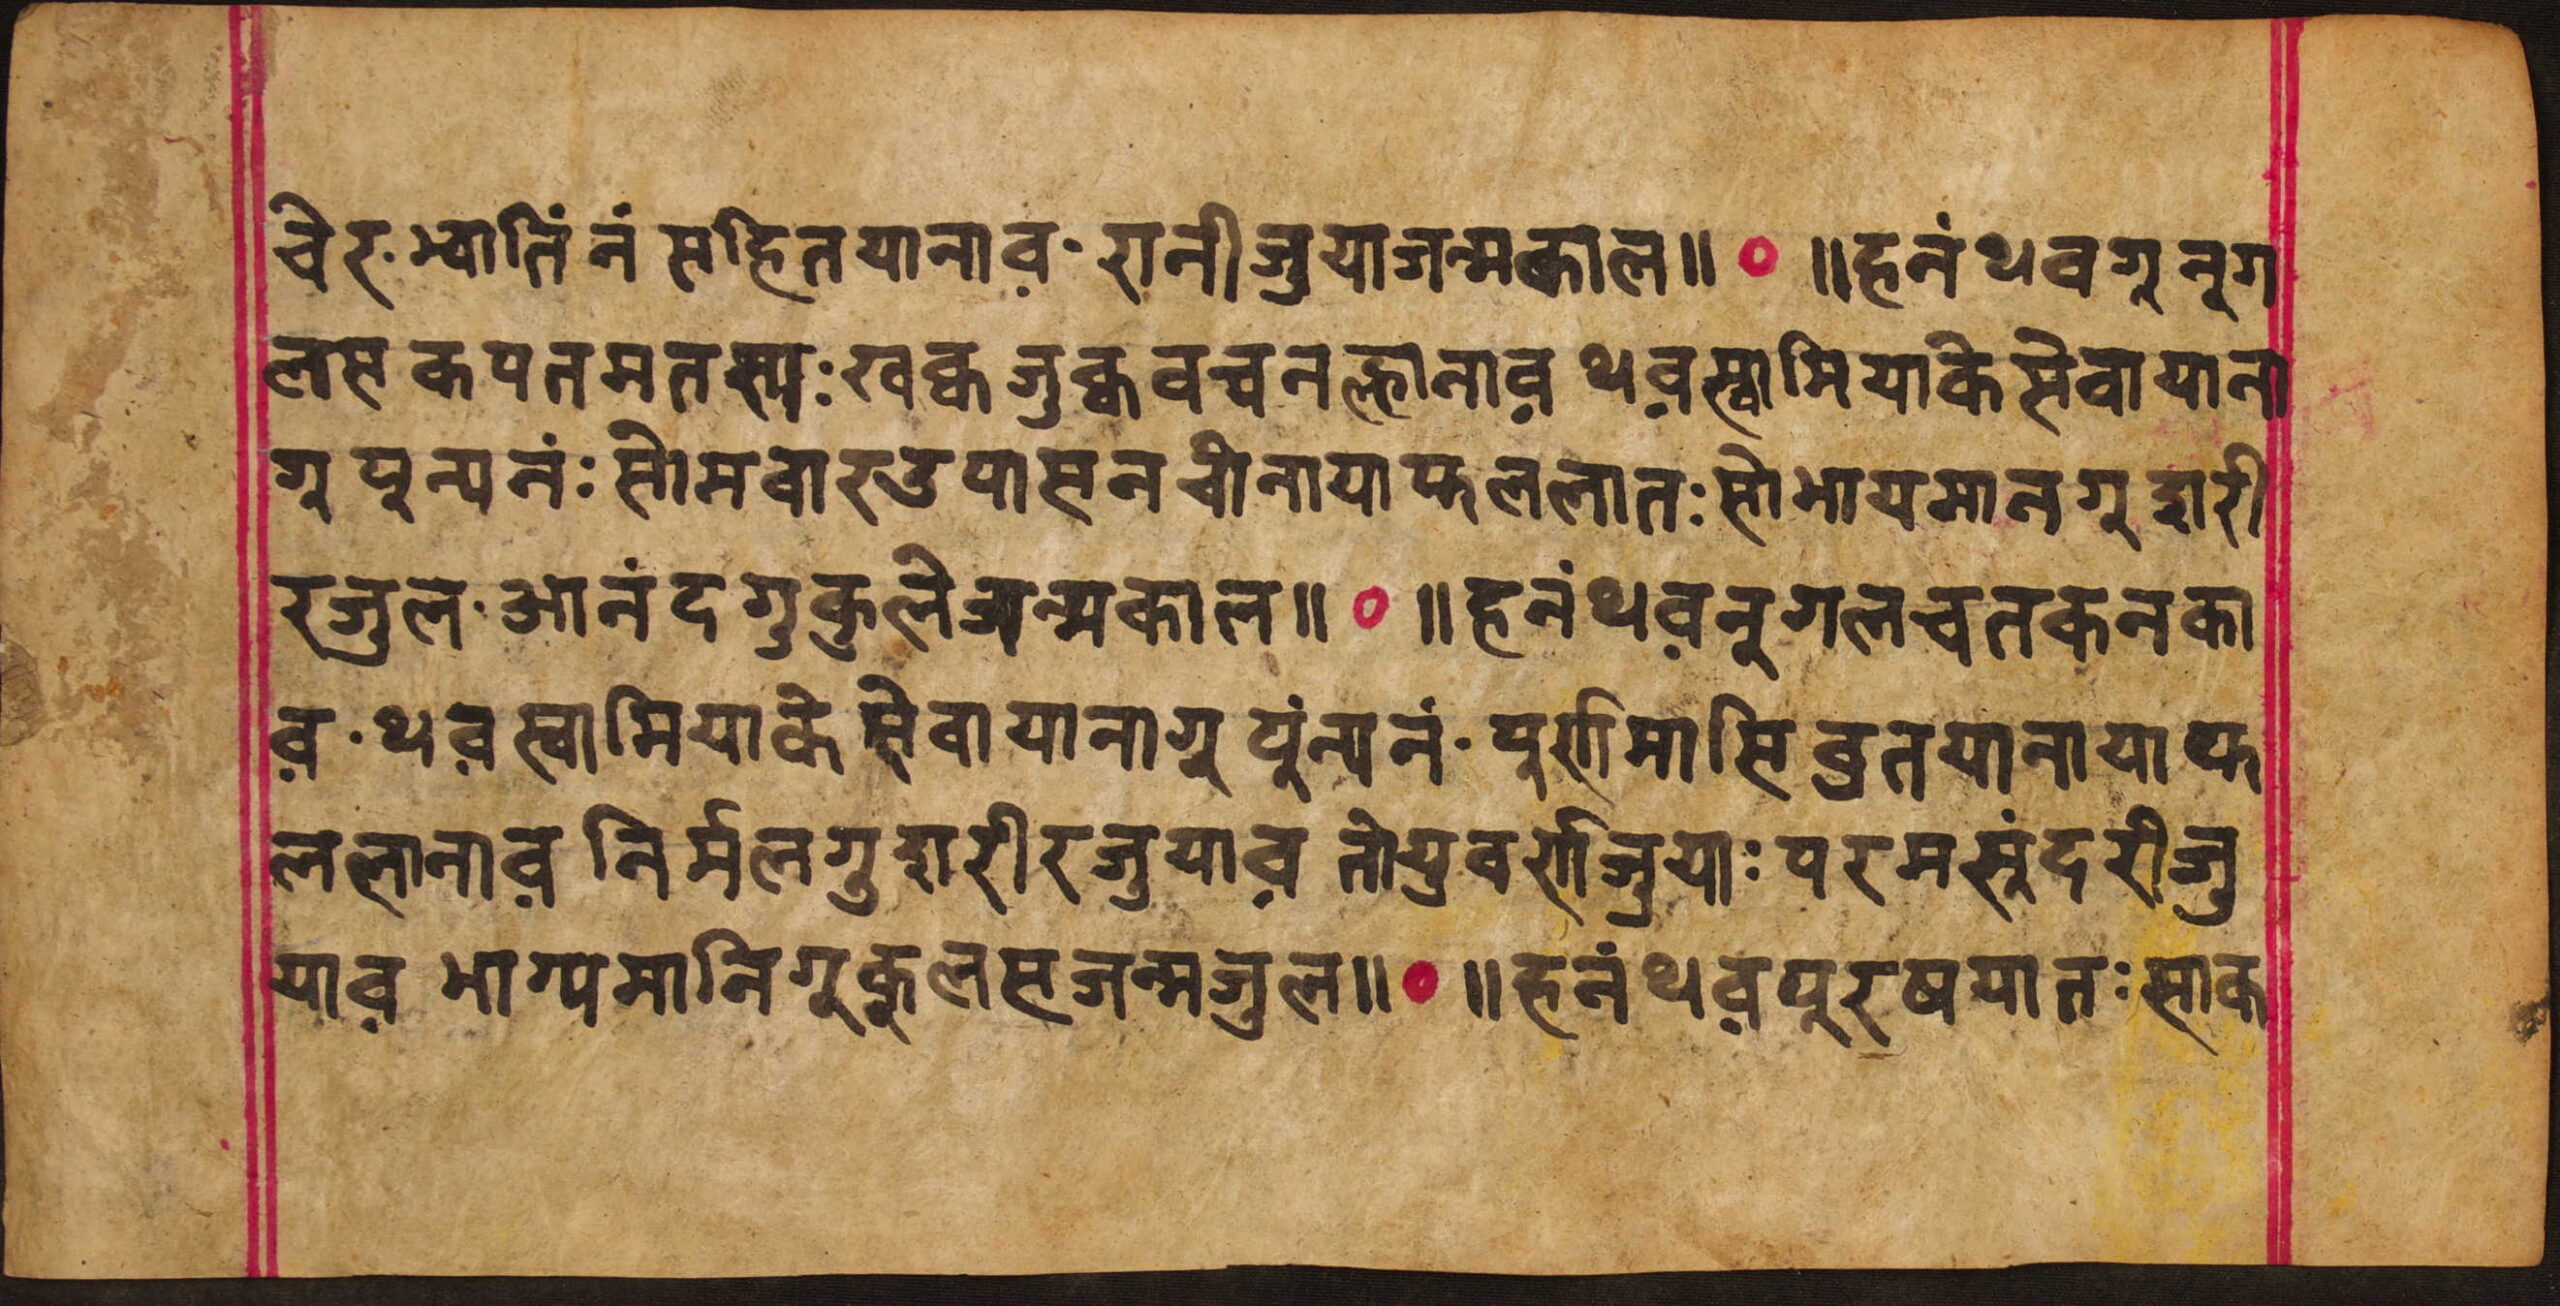 चेरु · भ्यातिं नं सहितयानाव़ · रानी जुयाजन्मकाल॥ ० ॥हनं थव गू नूग
लस कपतमतस्यः खक्व जुक्व वचनल्हानाव़ थव़स्वामियाके सेवा याना
गू पून्यनं: सोमवारउपासनचोनाया फललातः सोभायमानगू शरी
रजुल · आनंदगुकुलेजन्मकाल॥ ० ॥हनं थव़नूगलचतकनका
व़ · थव़स्वामियाके सेवायानागू पूंन्यनं · पूर्णमासि व्रुतयानाया फ
ललानाव़ निर्मलगु शरीरजुयाव़ तोयुवर्णजुयाः परमसुंदरी जु
याव़ भाग्यमानिगू कूलसजन्मजुल॥ ० ॥हनं थव़पूरुषयातः साक